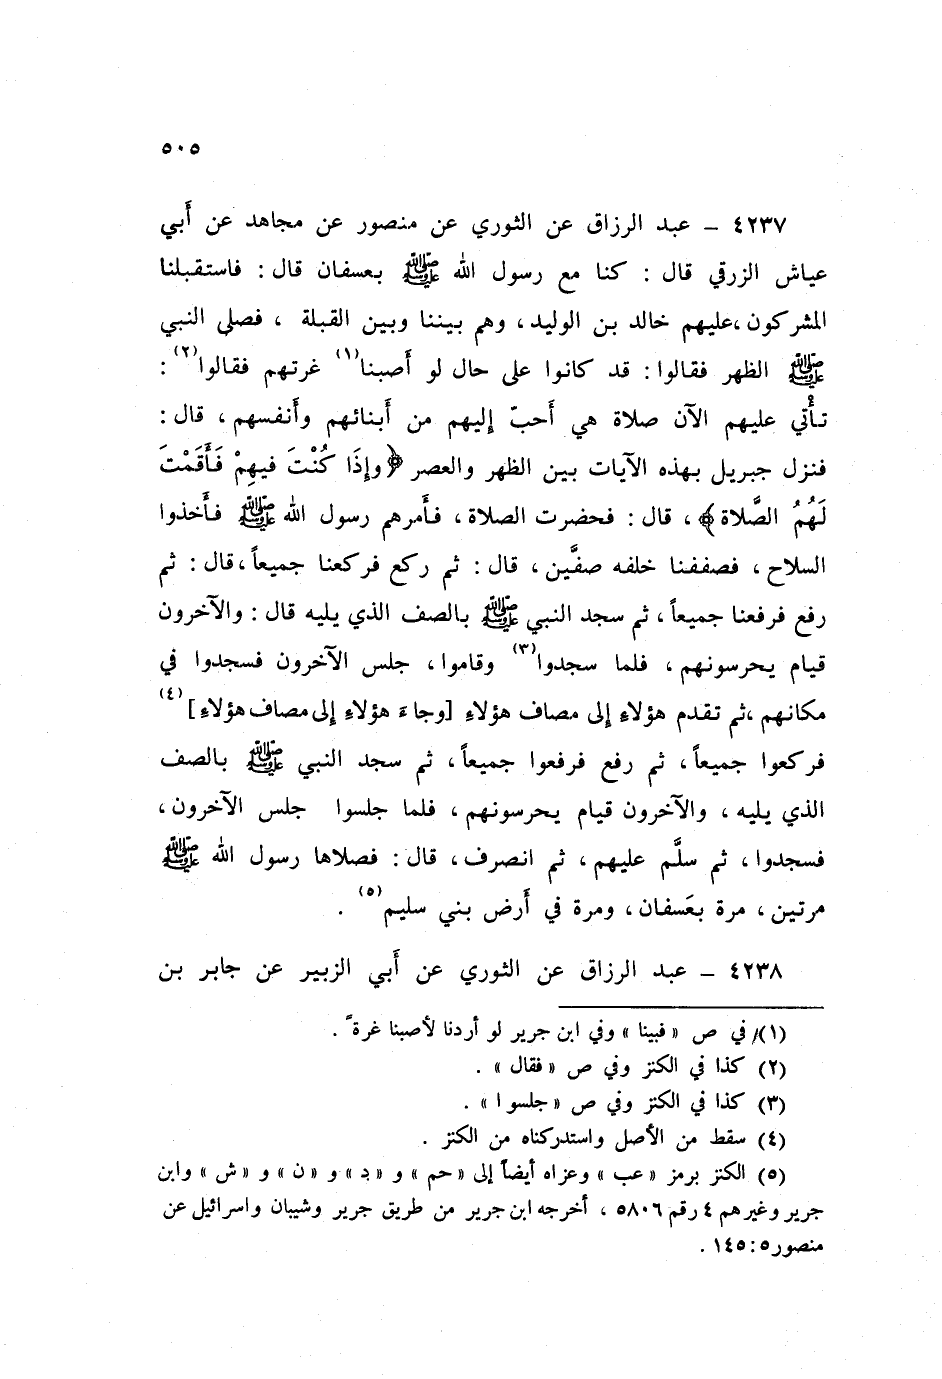 ٥٠٥
٤٢٣٧ – عبد الرزاق عن الثوري عن منصور عن مجاهد عن أَبي
عياش الزرقي قال : كنا مع رسول الله ﷺ بعسفان قال : فاستقبلنا
المشركون ،عليهم خالد بن الوليد ، وهم بيننا وبين القبلة ، فصلى النبي
ﷺ الظهر فقالوا : قد كانوا على حال لو أَصبنا(١) غرتهم فقالوا(٢) :
تأْتي عليهم الآن صلاة هي أَحبّ إليهم من أَبنائهم وأَنفسهم ، قال :
فنزل جبريل بهذه الآيات بين الظهر والعصر ﴿وإِذَا كُنْتَ فيهِمْ فَأَقَمْتَ
لَهُمُ الصَّلاة﴾ ، قال : فحضرت الصلاة ، فأَمرهم رسول الله ﷺ فأَخذوا
السلاح ، فصففنا خلفه صفَّين ، قال : ثم ركع فركعنا جميعاً ،قال : ثم
رفع فرفعنا جميعاً ، ثم سجد النبي ﷺ بالصف الذي يليه قال : والآخرون
قيام يحرسونهم ، فلما سجدوا(٣) وقاموا ، جلس الآخرون فسجدوا في
مكانهم ،ثم تقدم هؤلاءِ إلى مصاف هؤلاءِ [وجاءَ هؤلاءِ إلى مصاف هؤلاءِ](٤)
فركعوا جميعاً ، ثم رفع فرفعوا جميعاً ، ثم سجد النبي ﷺ بالصف
الذي يليه ، والآخرون قيام يحرسونهم ، فلما جلسوا جلس الآخرون ،
فسجدوا ، ثم سلَّم عليهم ، ثم انصرف ، قال : فصلاها رسول الله ﷺ
مرتين ، مرة بعَسفان ، ومرة في أَرض بني سليم(٥) .
٤٢٣٨ – عبد الرزاق عن الثوري عن أَبي الزبير عن جابر بن
(١) في ص « فبينا » وفي ابن جرير لو أردنا لأصبنا غرة ً .
(٢) كذا في الكنز وفي ص « فقال » .
(٣) كذا في الكنز وفي ص « جلسوا » .
(٤) سقط من الأصل واستدركناه من الكنز .
(٥) الكنز برمز « عب » وعزاه أيضاً إلى « حم » و « د » و « ن » و « ش » وابن
جرير وغيرهم ٤ رقم ٥٨٠٦ ، أخرجه ابن جرير من طريق جرير وشيبان واسرائيل عن
منصور ٥ : ١٤٥ .